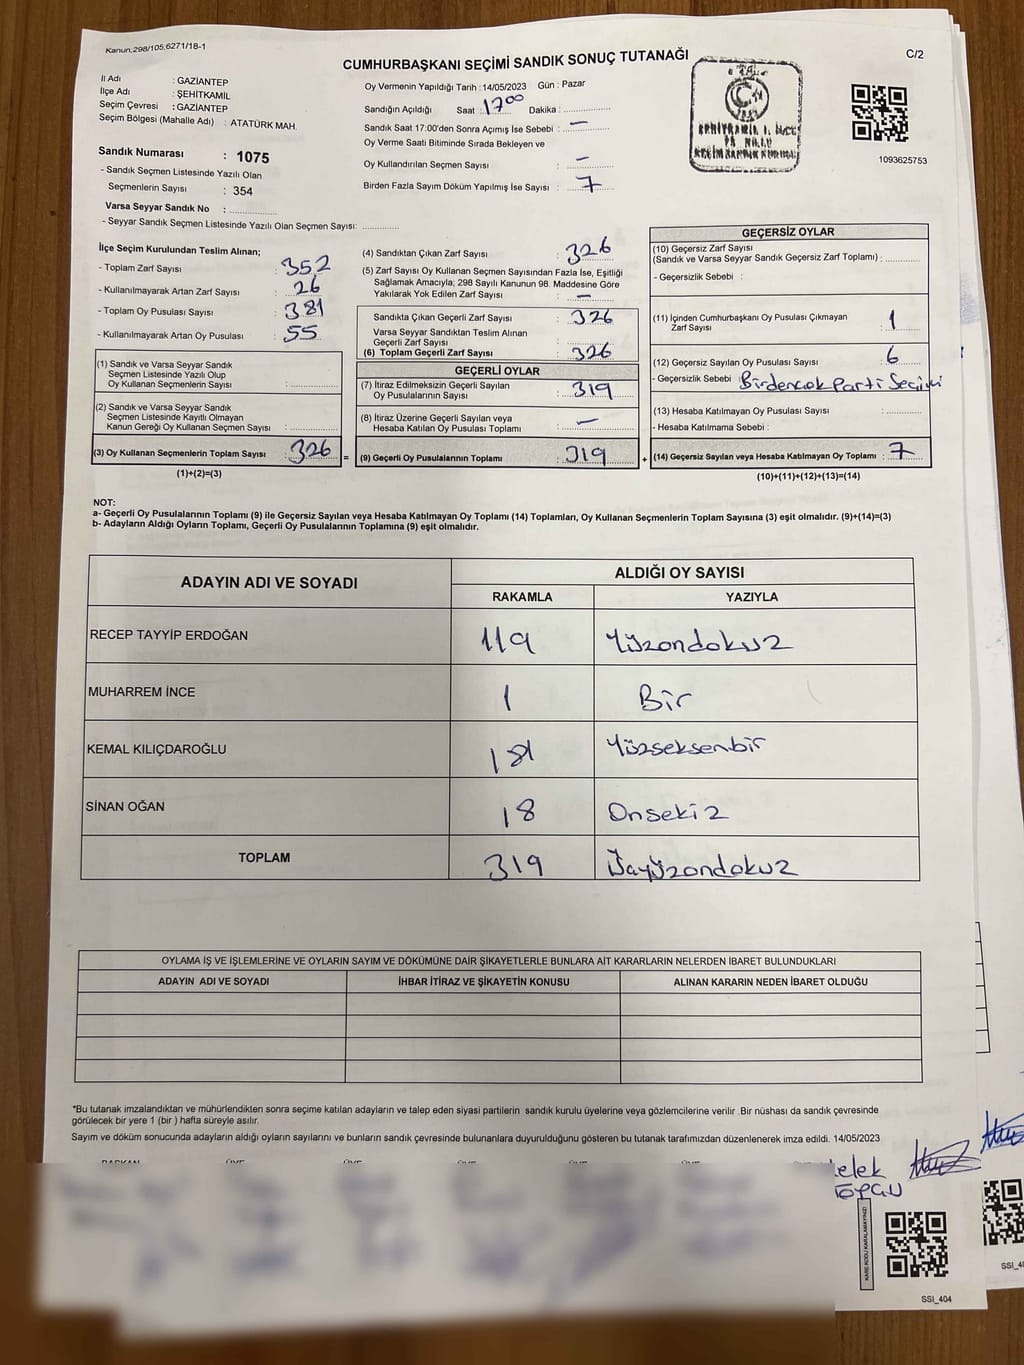 Kanun,298/105,6271/18-1
CUMHURBAŞKANI SEÇİMİ SANDIK SONUÇ TUTANAĞI
C/2
İl Adı : GAZİANTEP
İlçe Adı : ŞEHİTKAMİL
Seçim Çevresi : GAZİANTEP
Seçim Bölgesi (Mahalle Adı) : ATATÜRK MAH.
Sandık Numarası : 1075
- Sandık Seçmen Listesinde Yazılı Olan
Seçmenlerin Sayısı : 354
Varsa Seyyar Sandık No :
- Seyyar Sandık Seçmen Listesinde Yazılı Olan Seçmen Sayısı:
Oy Vermenin Yapıldığı Tarih : 14/05/2023 Gün : Pazar
Sandığın Açıldığı Saat : 17 00 Dakika :
Sandık Saat 17:00'den Sonra Açımış İse Sebebi : —
Oy Verme Saati Bitiminde Sırada Bekleyen ve
Oy Kullandırılan Seçmen Sayısı : —
Birden Fazla Sayım Döküm Yapılmış İse Sayısı : 7
1093625753
İlçe Seçim Kurulundan Teslim Alınan;
- Toplam Zarf Sayısı : 352
- Kullanılmayarak Artan Zarf Sayısı : 26
- Toplam Oy Pusulası Sayısı : 381
- Kullanılmayarak Artan Oy Pusulası : 55
(1) Sandık ve Varsa Seyyar Sandık
Seçmen Listesinde Yazılı Olup
Oy Kullanan Seçmenlerin Sayısı :
(2) Sandık ve Varsa Seyyar Sandık
Seçmen Listesinde Kayıtlı Olmayan
Kanun Gereği Oy Kullanan Seçmen Sayısı :
(3) Oy Kullanan Seçmenlerin Toplam Sayısı : 326 =
(1)+(2)=(3)
(4) Sandıktan Çıkan Zarf Sayısı : 326
(5) Zarf Sayısı Oy Kullanan Seçmen Sayısından Fazla İse, Eşitliği
Sağlamak Amacıyla; 298 Sayılı Kanunun 98. Maddesine Göre
Yakılarak Yok Edilen Zarf Sayısı : —
Sandıkta Çıkan Geçerli Zarf Sayısı : 326
Varsa Seyyar Sandıktan Teslim Alınan
Geçerli Zarf Sayısı :
(6) Toplam Geçerli Zarf Sayısı : 326
GEÇERLİ OYLAR
(7) İtiraz Edilmeksizin Geçerli Sayılan
Oy Pusulalarının Sayısı : 319
(8) İtiraz Üzerine Geçerli Sayılan veya
Hesaba Katılan Oy Pusulası Toplamı : —
(9) Geçerli Oy Pusulalarının Toplamı : 319 +
GEÇERSİZ OYLAR
(10) Geçersiz Zarf Sayısı
(Sandık ve Varsa Seyyar Sandık Geçersiz Zarf Toplamı) :
- Geçersizlik Sebebi :
(11) İçinden Cumhurbaşkanı Oy Pusulası Çıkmayan
Zarf Sayısı : 1
(12) Geçersiz Sayılan Oy Pusulası Sayısı : 6
- Geçersizlik Sebebi : Birdencok Parti Seçimi
(13) Hesaba Katılmayan Oy Pusulası Sayısı :
- Hesaba Katılmama Sebebi :
(14) Geçersiz Sayılan veya Hesaba Katılmayan Oy Toplamı : 7
(10)+(11)+(12)+(13)=(14)
NOT:
a- Geçerli Oy Pusulalarının Toplamı (9) ile Geçersiz Sayılan veya Hesaba Katılmayan Oy Toplamı (14) Toplamları, Oy Kullanan Seçmenlerin Toplam Sayısına (3) eşit olmalıdır. (9)+(14)=(3)
b- Adayların Aldığı Oyların Toplamı, Geçerli Oy Pusulalarının Toplamına (9) eşit olmalıdır.
ADAYIN ADI VE SOYADI
ALDIĞI OY SAYISI
RAKAMLA YAZIYLA
RECEP TAYYİP ERDOĞAN 119 Yüzondokuz
MUHARREM İNCE 1 Bir
KEMAL KILIÇDAROĞLU 181 Yüzseksenbir
SİNAN OĞAN 18 Onsekiz
TOPLAM 319 Üçyüzondokuz
OYLAMA İŞ VE İŞLEMLERİNE VE OYLARIN SAYIM VE DÖKÜMÜNE DAİR ŞİKAYETLERLE BUNLARA AİT KARARLARIN NELERDEN İBARET BULUNDUKLARI
ADAYIN ADI VE SOYADI İHBAR İTİRAZ VE ŞİKAYETİN KONUSU ALINAN KARARIN NEDEN İBARET OLDUĞU
*Bu tutanak imzalandıktan ve mühürlendikten sonra seçime katılan adayların ve talep eden siyasi partilerin sandık kurulu üyelerine veya gözlemcilerine verilir .Bir nüshası da sandık çevresinde
görülecek bir yere 1 (bir ) hafta süreyle asılır.
Sayım ve döküm sonucunda adayların aldığı oyların sayılarını ve bunların sandık çevresinde bulunanlara duyurulduğunu gösteren bu tutanak tarafımızdan düzenlenerek imza edildi. 14/05/2023
KARE KODU KARALAMAYINIZ!
SSI_404